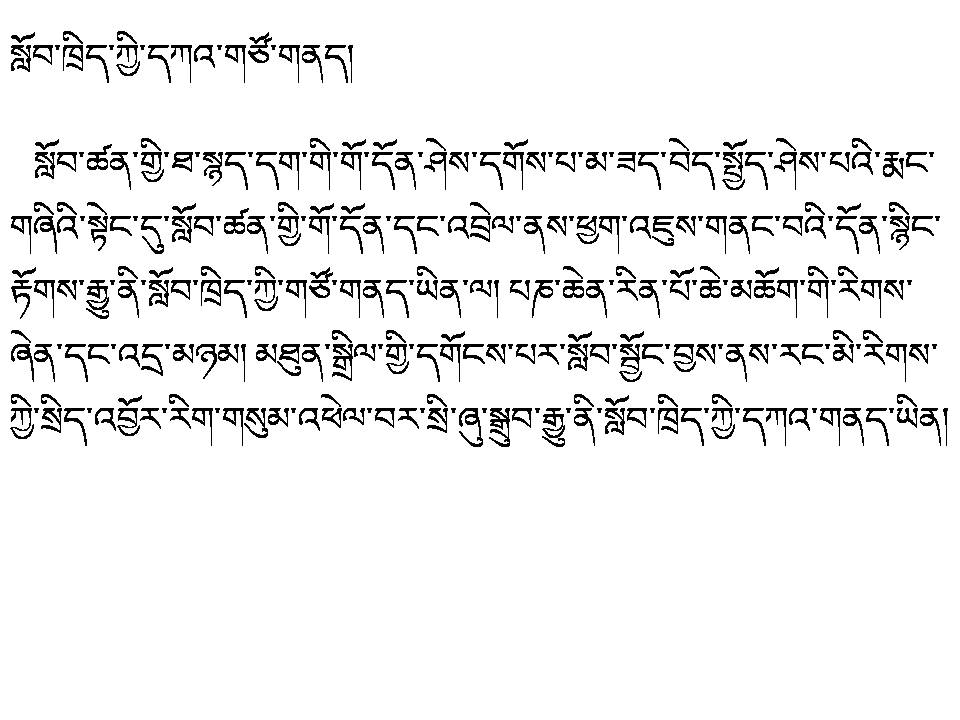 སློབ་ཁྲིད་ཀྱི་དཀའ་གཙོ་གནད།
སློབ་ཚན་གྱི་ཐ་སྙད་དག་གི་གོ་དོན་ཤེས་དགོས་པ་མ་ཟད་བེད་སྤྱོད་ཤེས་པའི་རྨང་
གཞིའི་སྟེང་དུ་སློབ་ཚན་གྱི་གོ་དོན་དང་འབྲེལ་ནས་ཕྱག་འཇུས་གནང་བའི་དོན་སྙིང་
རྟོགས་རྒྱུ་ནི་སློབ་ཁྲིད་ཀྱི་གཙོ་གནད་ཡིན་ལ། པཎ་ཆེན་རིན་པོ་ཆེ་མཆོག་གི་རིགས་
ཞེན་དང་འདྲ་མཉམ། མཐུན་སྒྲིལ་གྱི་དགོངས་པར་སློབ་སྦྱོང་བྱས་ནས་རང་མི་རིགས་
ཀྱི་སྲིད་འབྱོར་རིག་གསུམ་འཕེལ་བར་སྲི་ཞུ་སྒྲུབ་རྒྱུ་ནི་སློབ་ཁྲིད་ཀྱི་དཀའ་གནད་ཡིན།